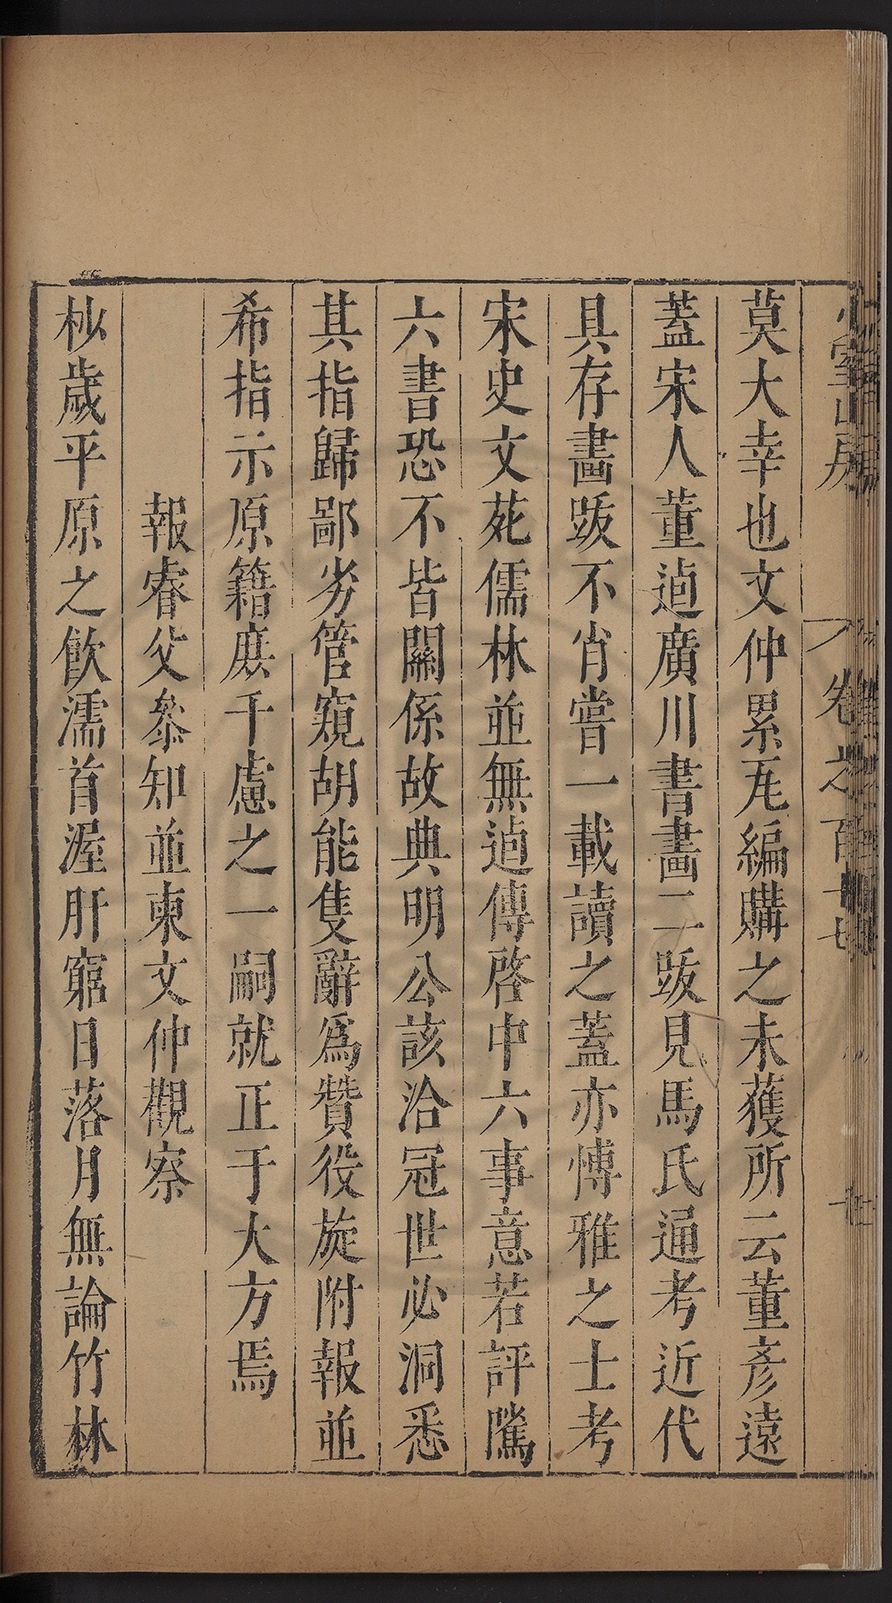 少室山房
卷之百十七
莫大幸也文仲累在編購之未獲所云董彥遠
蓋宋人董逌廣川書畫二䟦見馬氏通考近代
具存畫䟦不肖嘗一載讀之蓋亦愽雅之士考
宋史文苑儒林並無逌傳啓中六事意若評隲
六書恐不皆關係故典明公該洽冠世必洞悉
其指歸鄙劣管窺胡能隻辭爲贊役旋附報並
希指示原籍庶千慮之一嗣就正于大方焉
報睿父叅知並柬文仲觀察
杪歲平原之飲濡首渥肝窮日落月無論竹林